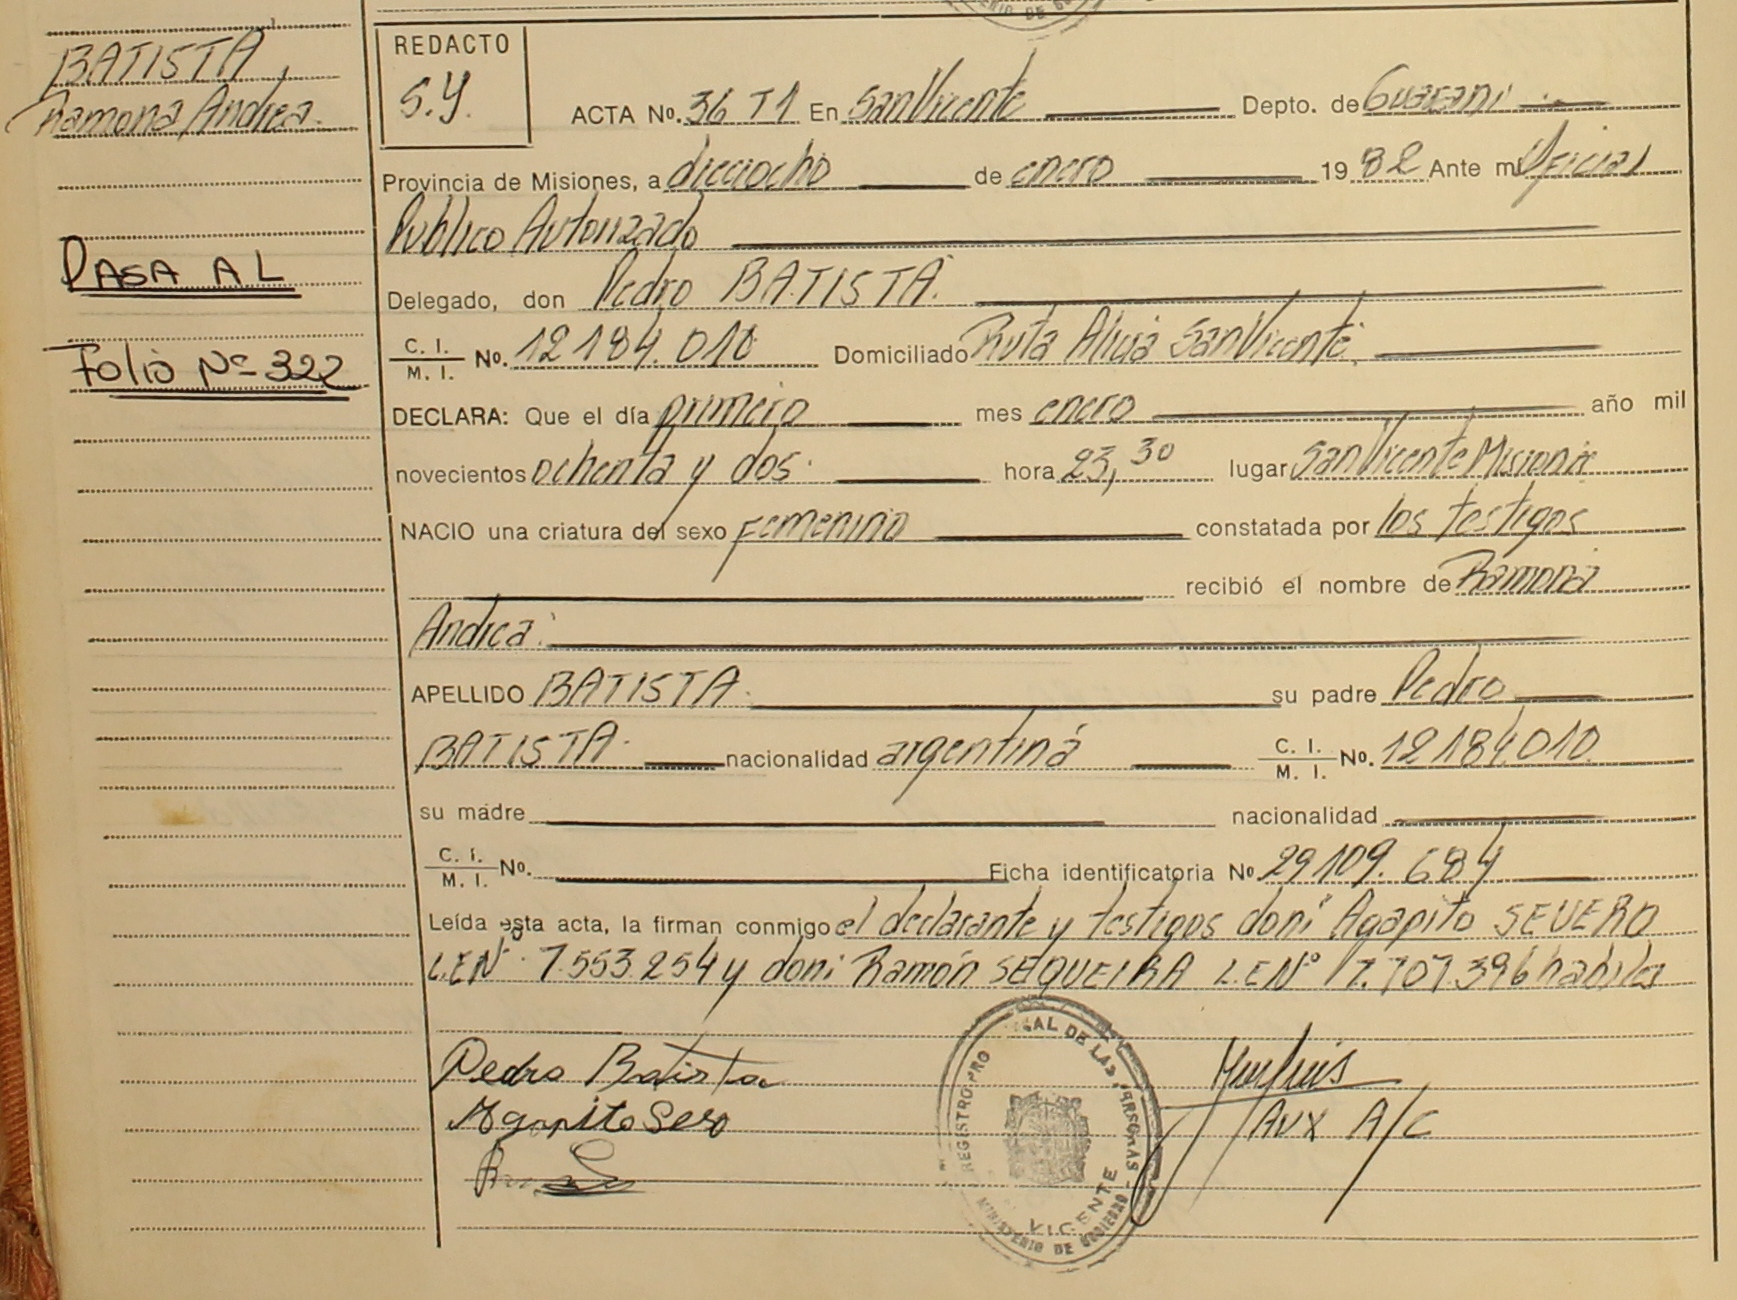 BATISTA
Ramona Andrea.
PASA AL
Folio Nº 322
REDACTO
S.Y.
ACTA No. 36 T1 En San Vicente Depto. de Guarani
Provincia de Misiones, a dieciocho de enero 1982 Ante mi Oficial
Publico Autorizado
Delegado, don Pedro BATISTA.
C. I. / M. I. No. 12 184.010 Domiciliado Ruta Alicia San Vicente.
DECLARA: Que el día primero mes enero año mil
novecientos ochenta y dos. hora 23,30 lugar San Vicente Misiones
NACIO una criatura del sexo Femenino constatada por los testigos
recibió el nombre de Ramona
Andrea.
APELLIDO BATISTA. su padre Pedro
BATISTA. nacionalidad argentina C. I. / M. I. No. 12184010.
su madre nacionalidad
C. I. / M. I. No. Ficha identificatoria No 29109.684
Leída esta acta, la firman conmigo el declarante y testigos don: Agapito SEVERO
L.E Nº 7.553.254 y don: Ramón SEQUEIRA L.E Nº 7.707.396 habiles
Pedro Batista
Agapito Sero
AUX A/C
REGISTRO PRO AL DE LAS PERSONAS
VICENTE
MINISTERIO DE GOBIERNO